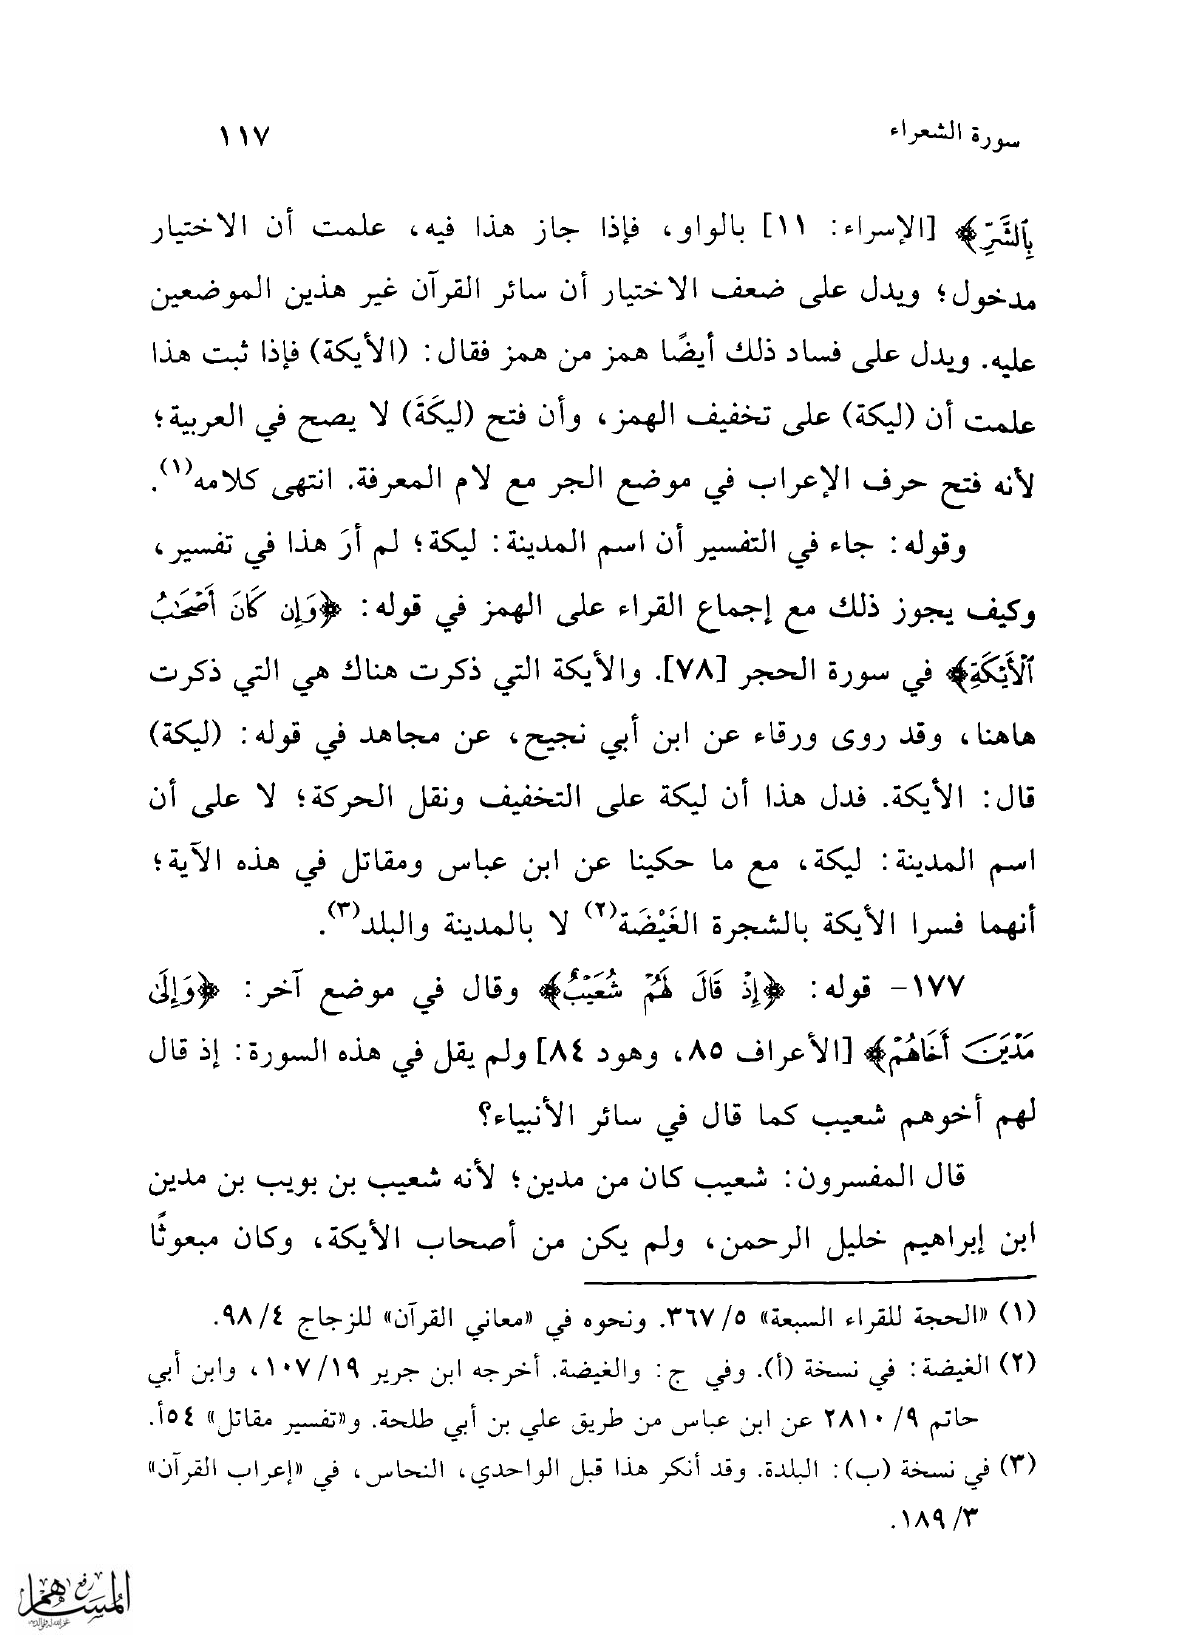 سورة الشعراء ١١٧
بِٱلشَّرِّ﴾ [الإسراء: ١١] بالواو، فإذا جاز هذا فيه، علمت أن الاختيار
مدخول؛ ويدل على ضعف الاختيار أن سائر القرآن غير هذين الموضعين
عليه. ويدل على فساد ذلك أيضًا همز من همز فقال: (الأيكة) فإذا ثبت هذا
علمت أن (ليكة) على تخفيف الهمز، وأن فتح (ليكَةَ) لا يصح في العربية؛
لأنه فتح حرف الإعراب في موضع الجر مع لام المعرفة. انتهى كلامه(١).
وقوله: جاء في التفسير أن اسم المدينة: ليكة؛ لم أرَ هذا في تفسير،
وكيف يجوز ذلك مع إجماع القراء على الهمز في قوله: ﴿وَإِن كَانَ أَصْحَٰبُ
ٱلْأَيْكَةِ﴾ في سورة الحجر [٧٨]. والأيكة التي ذكرت هناك هي التي ذكرت
هاهنا، وقد روى ورقاء عن ابن أبي نجيح، عن مجاهد في قوله: (ليكة)
قال: الأيكة. فدل هذا أن ليكة على التخفيف ونقل الحركة؛ لا على أن
اسم المدينة: ليكة، مع ما حكينا عن ابن عباس ومقاتل في هذه الآية؛
أنهما فسرا الأيكة بالشجرة الغَيْضَة(٢) لا بالمدينة والبلد(٣).
١٧٧- قوله: ﴿إِذْ قَالَ لَهُمْ شُعَيْبٌ﴾ وقال في موضع آخر: ﴿وَإِلَىٰ
مَدْيَنَ أَخَاهُمْ﴾ [الأعراف ٨٥، وهود ٨٤] ولم يقل في هذه السورة: إذ قال
لهم أخوهم شعيب كما قال في سائر الأنبياء؟
قال المفسرون: شعيب كان من مدين؛ لأنه شعيب بن بويب بن مدين
ابن إبراهيم خليل الرحمن، ولم يكن من أصحاب الأيكة، وكان مبعوثًا
(١) «الحجة للقراء السبعة» ٥/ ٣٦٧. ونحوه في «معاني القرآن» للزجاج ٤/ ٩٨.
(٢) الغيضة: في نسخة (أ). وفي ج: والغيضة. أخرجه ابن جرير ١٩/ ١٠٧، وابن أبي
حاتم ٩/ ٢٨١٠ عن ابن عباس من طريق علي بن أبي طلحة. و«تفسير مقاتل» ٥٤أ.
(٣) في نسخة (ب): البلدة. وقد أنكر هذا قبل الواحدي، النحاس، في «إعراب القرآن»
٣/ ١٨٩.
رفع
المساهم